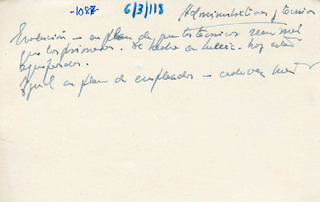 -1087- 6/3/118 Administrativos y Técnicos
Evolución - en plan de que los técnicos sean más
que los primeros. De hecho en - hoy están
equiparados.
Igual en plan de empleados - cada vez más